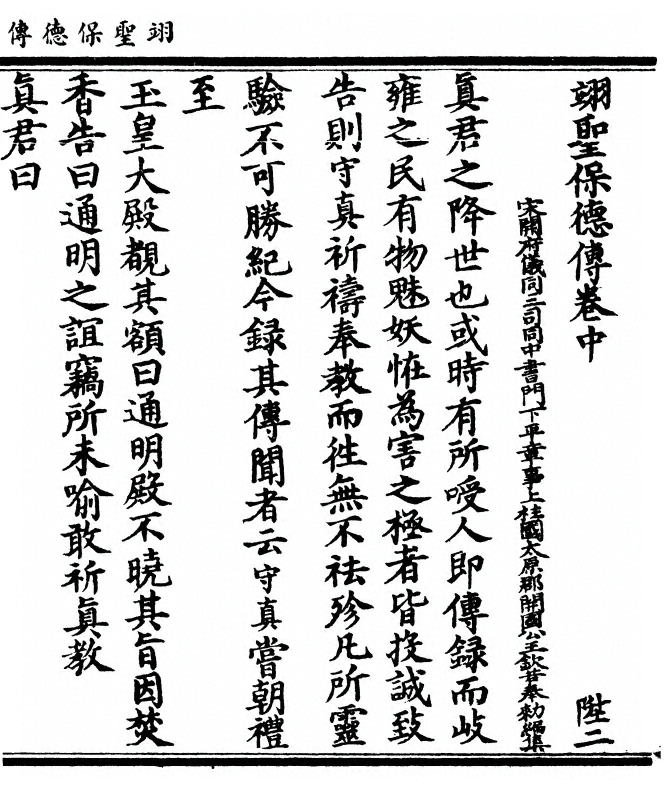 翊聖保德傳
翊聖保德傳卷中　陛二
宋開府儀同三司同中書門下平章事上柱國太原郡開國公王欽若奉勑編集
眞君之降世也或時有所唆人即傳録而岐
雍之民有物魅妖恠為害之極者皆投誠致
告則守真祈禱奉教而徃無不祛殄凡所靈
驗不可勝紀今録其傳聞者云守真嘗朝禮
至
玉皇大殿覩其額曰通明殿不曉其旨因焚
香告曰通明之誼竊所未喻敢祈眞教
眞君曰